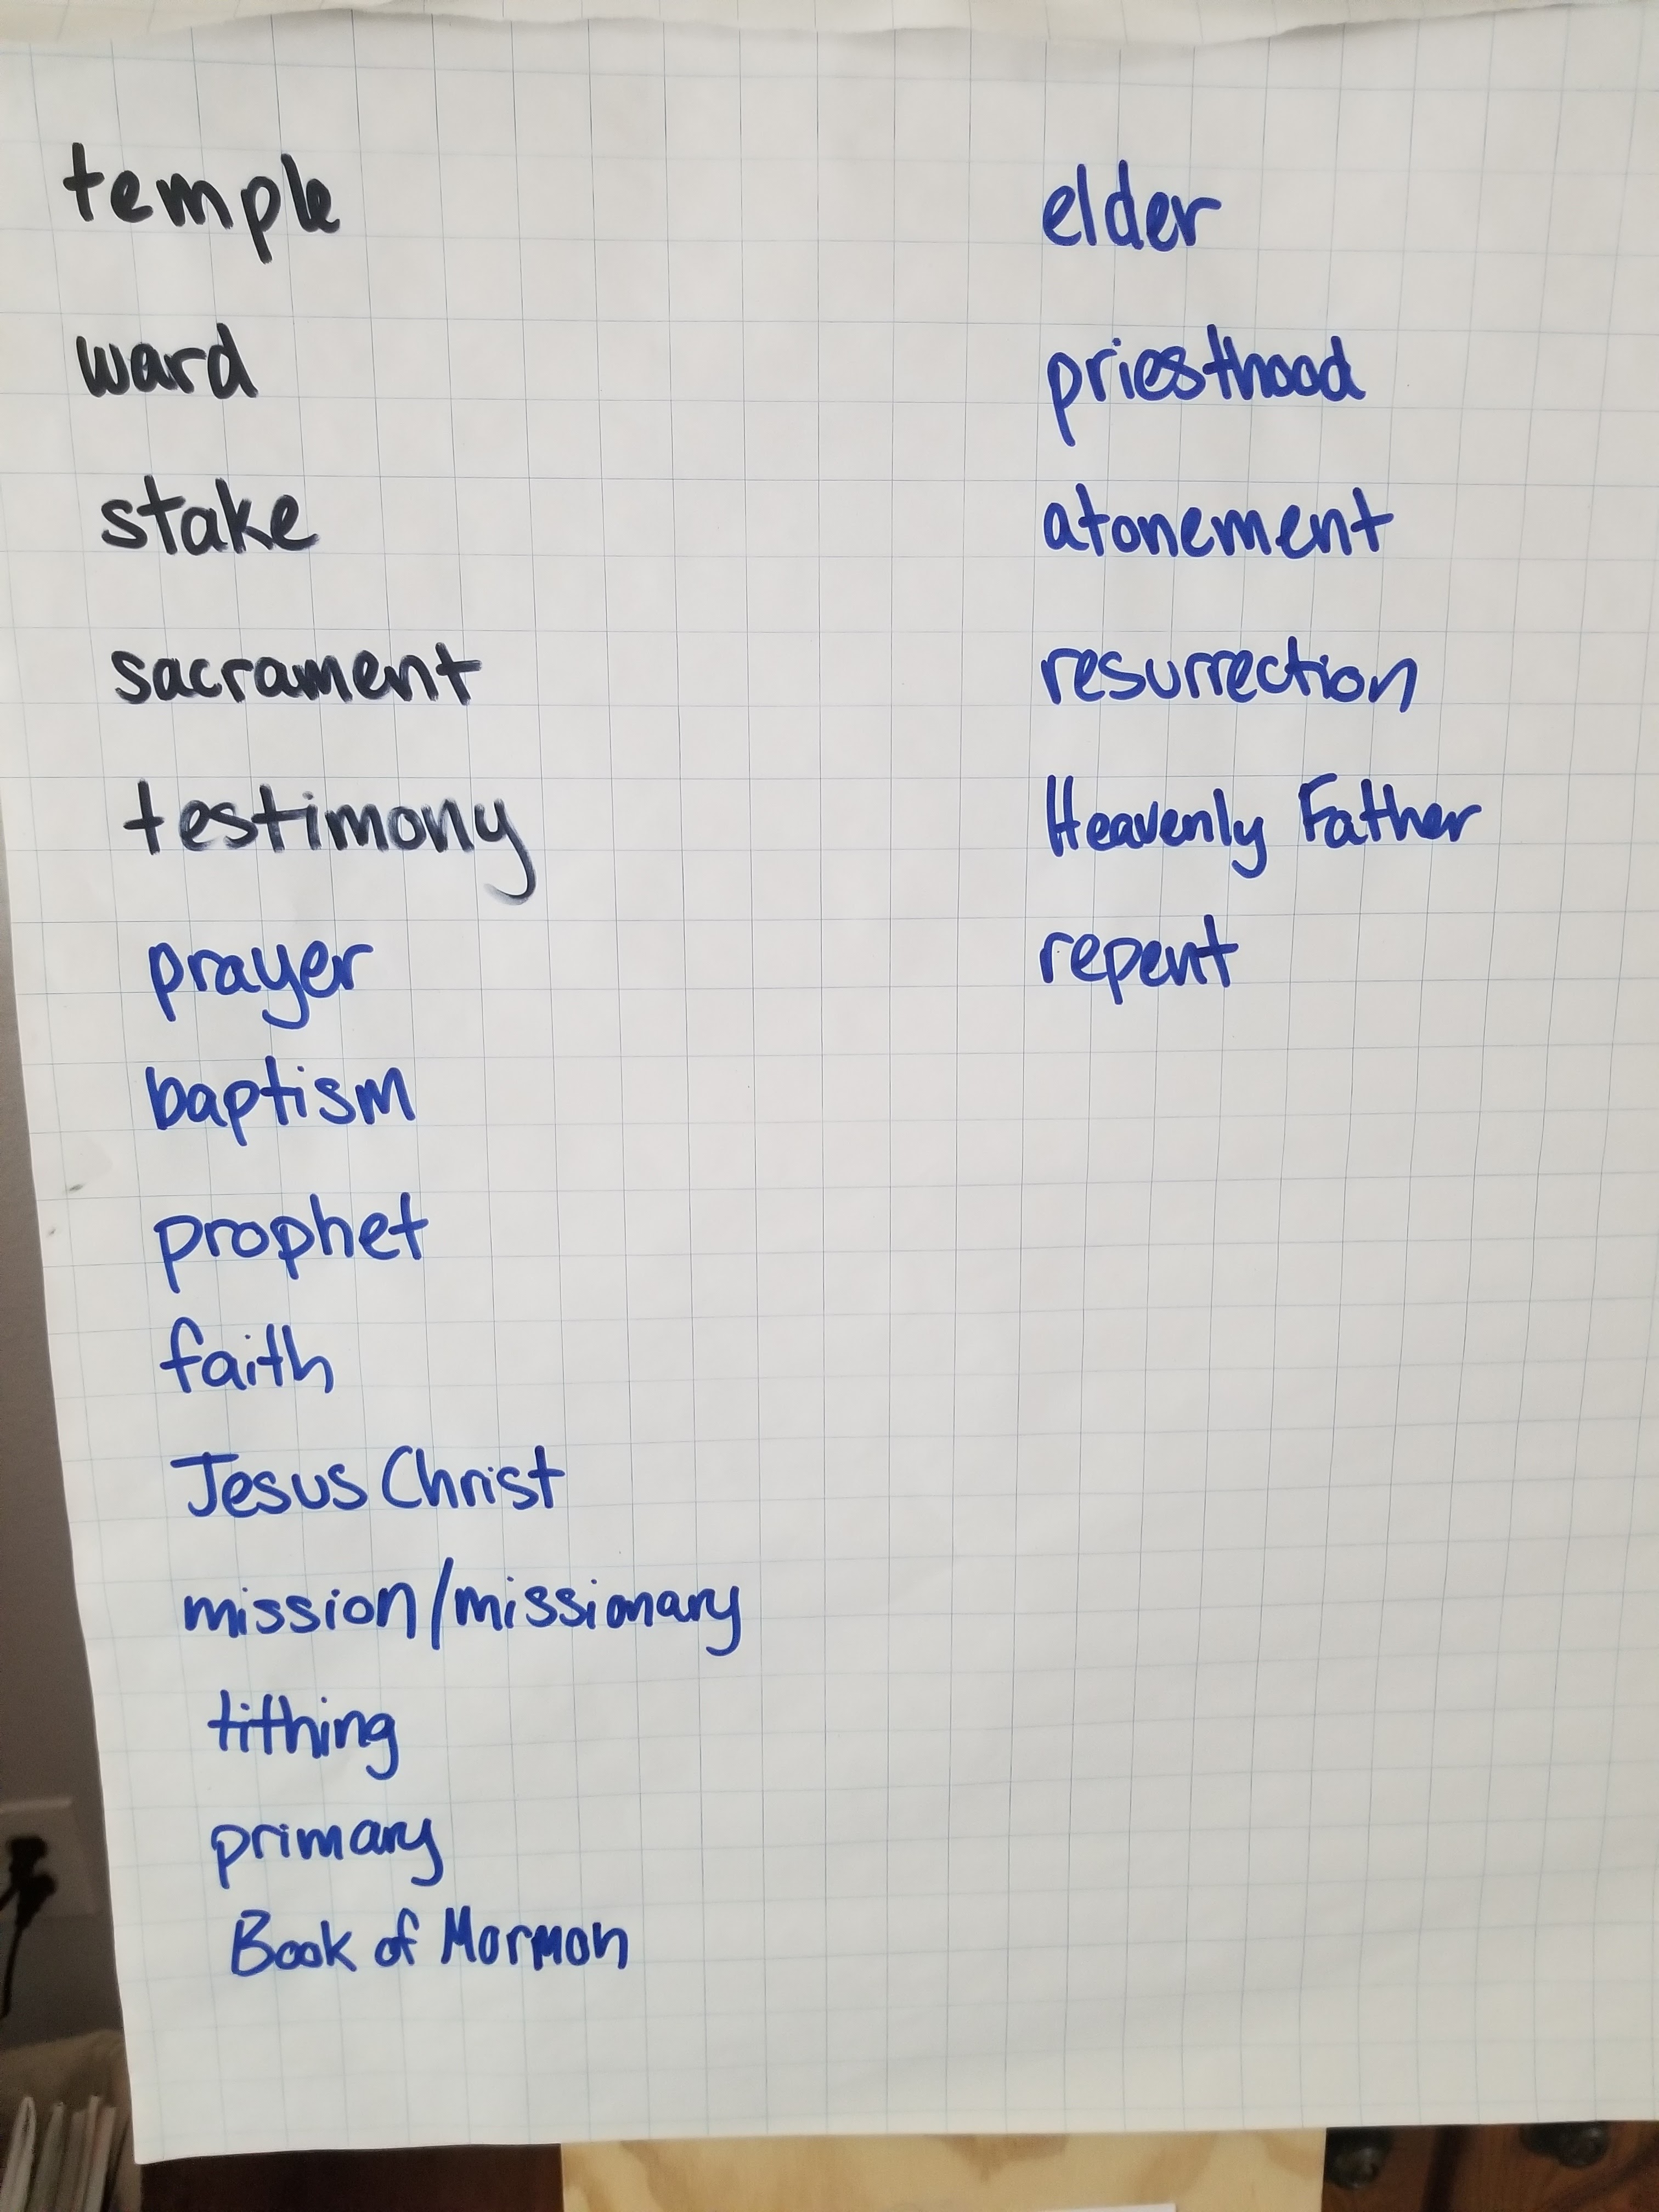 temple
ward
stake
sacrament
testimony
prayer
baptism
prophet
faith
Jesus Christ
mission/missionary
tithing
primary
Book of Mormon
elder
priesthood
atonement
resurrection
Heavenly Father
repent